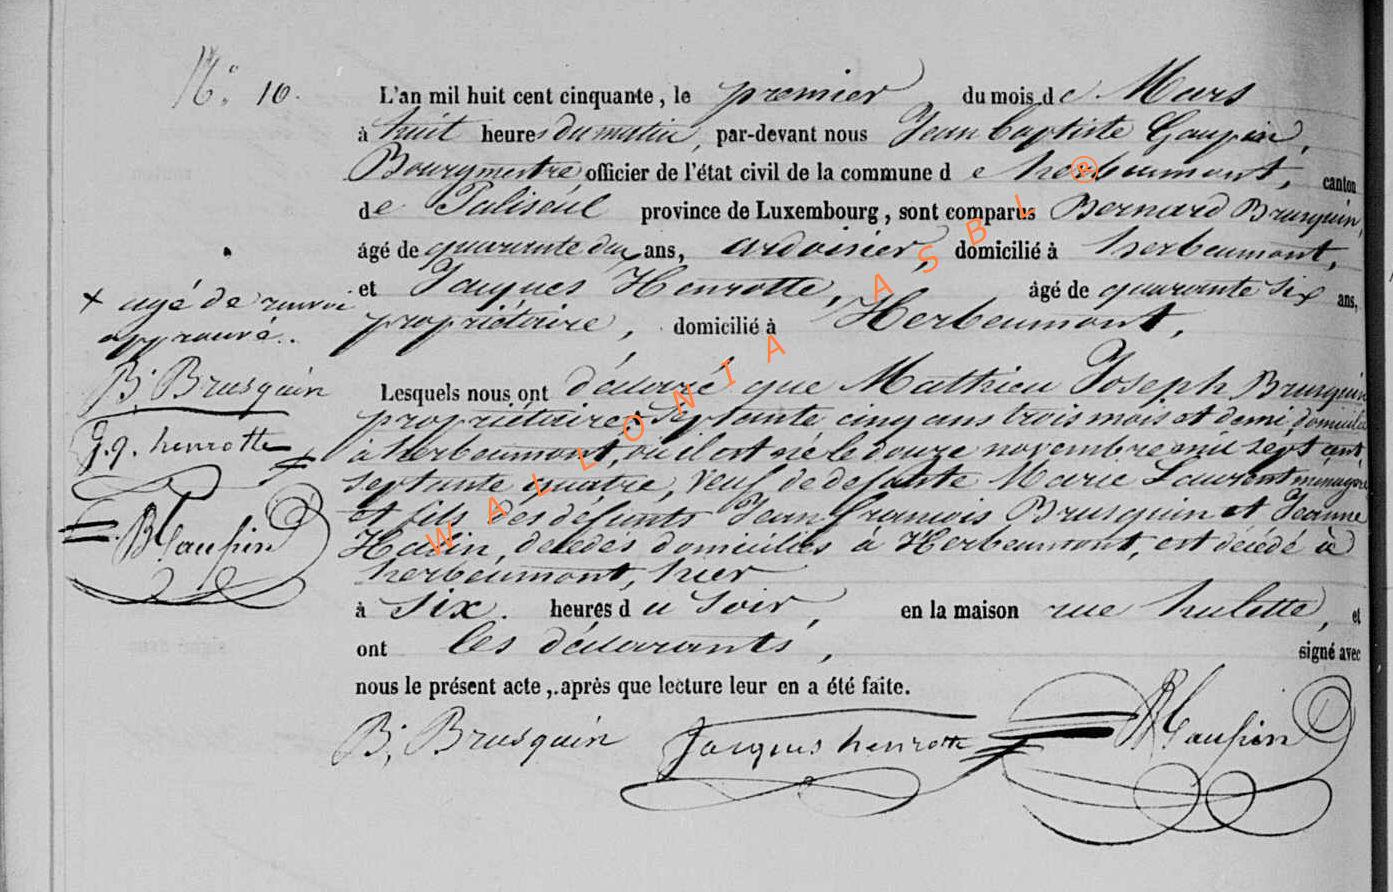 N° 10.
L'an mil huit cent cinquante, le premier du mois de Mars
à huit heures du matin, par-devant nous Jean Baptiste Gaupin,
Bourgmestre, officier de l'état civil de la commune de herbeumont, canton
de Paliseul province de Luxembourg, sont comparus Bernard Brusquin,
âgé de quarante deux ans, ardoisier, domicilié à herbeumont,
et Jacques Henrotte, âgé de quarante six ans,
propriétaire, domicilié à Herbeumont,
+ âgé de renvoi
approuvé..
B; Brusquin
J. J. henrotte
JB Gaupin
Lesquels nous ont déclaré que Mathieu Joseph Brusquin
propriétaire + septante cinq ans trois mois et demi domicilié
à herbeumont, où il est né le douze novembre mil sept cent
septante quatre, veuf de defunte Marie Laurent menagère
et fils des défunts Jean françois Brusquin et Jeanne
décédés domiciliés à Herbeumont, est décédé à
herbeumont, hier
à six. heures du soir, en la maison rue hulette, et
ont les déclarants, signé avec
nous le présent acte, après que lecture leur en a été faite.
B; Brusquin Jacques henrotte JB Gaupin
WALLONIA ASBL ®